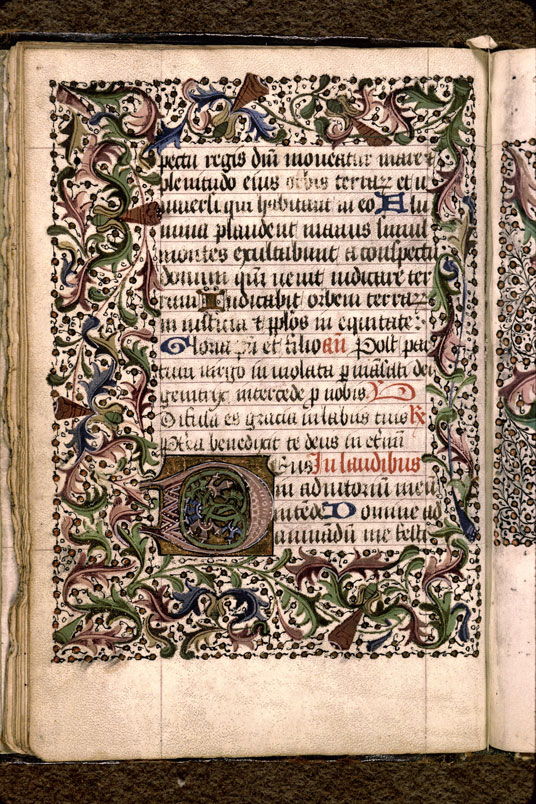 pectu regis dñi moueatur mare &
plenitudo eius orbis terraꝝ et u
niuersi qui habitant in eo Flu
mina plaudent manus simul
montes exultabunt a conspectu
domini qm̃ uenit iudicare ter
ram Iudicabit orbem terraꝝ
in iusticia ⁊ pp̃los in equitate
Gloria pñ et filio añ Post par
tum uirgo inuiolata pmãsisti dei
genitrix intercede p nobis. V
Diffusa es gracia in labiis tuis R
Pt̃ea benedixit te deus in et̃nũ
Eus In laudibus
in adiutoriũ meũ
intẽde Domine ad
iuuandũ me festi